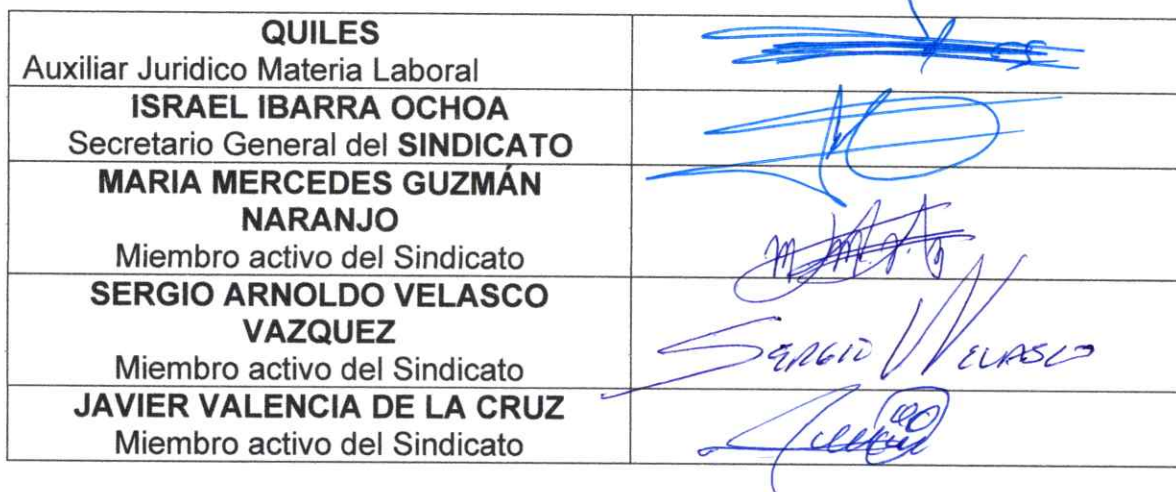 QUILES
Auxiliar Juridico Materia Laboral
ISRAEL IBARRA OCHOA
Secretario General del SINDICATO
MARIA MERCEDES GUZMÁN
NARANJO
Miembro activo del Sindicato
SERGIO ARNOLDO VELASCO
VAZQUEZ
Miembro activo del Sindicato
SERGIO VELASCO
JAVIER VALENCIA DE LA CRUZ
Miembro activo del Sindicato